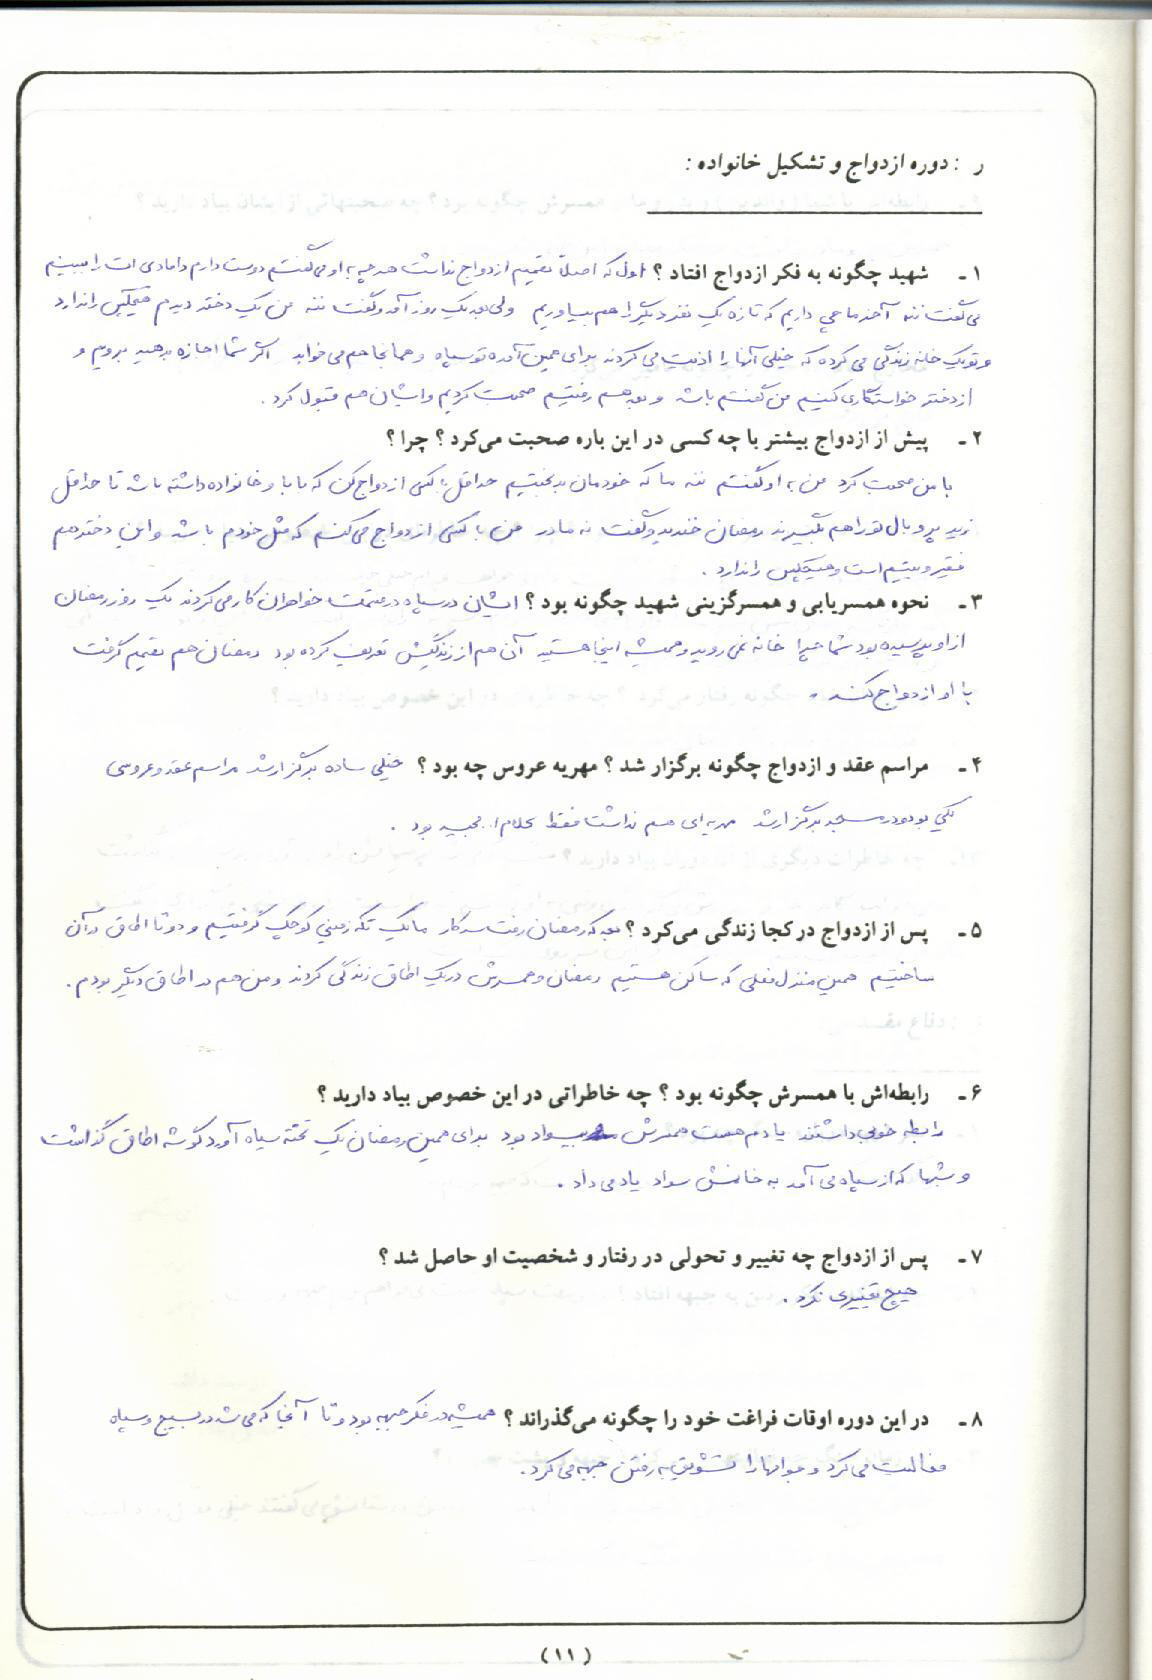 ر : دوره ازدواج و تشکیل خانواده :
۱ - شهید چگونه به فکر ازدواج افتاد ؟ اول که اصلاً تصمیم ازدواج نداشت هر چه به او می گفتم دوست دارم دامادی ات را ببینم
می گفت ننه آخر ما چی داریم که تازه یک نفر دیگر را هم بیاوریم ولی بعد یک روز آمد و گفت ننه من یک دختر دیدم هیچکس را ندارد
و تو یک خانه زندگی می کرده که خیلی آنها را اذیت می کردند برای همین آمده تو سپاه و همانجا هم می خوابد اگر شما اجازه بدهید برویم و
از دختر خواستگاری کنیم من گفتم باشد و بعد هم رفتیم صحبت کردیم و ایشان هم قبول کرد .
۲ - پیش از ازدواج بیشتر با چه کسی در این باره صحبت می‌کرد ؟ چرا ؟
با من صحبت کرد من به او گفتم ننه ما که خودمان بدبختیم حداقل با کسی ازدواج کن که بابا و خانواده داشته باشد تا حداقل
زیر پر و بال تو را هم بگیرند رمضان خندید و گفت نه مادر من با کسی ازدواج می کنم که مثل خودم باشد و این دختر هم
فقیر و یتیم است و هیچکس را ندارد .
۳ - نحوه همسریابی و همسرگزینی شهید چگونه بود ؟ ایشان در سپاه در قسمت خواهران کار می کردند یک روز رمضان
از او پرسیده بود شما چرا خانه نمی روید و همیشه اینجا هستید آن هم از زندگیش تعریف کرده بود رمضان هم تصمیم گرفت
با او ازدواج کند .
۴ - مراسم عقد و ازدواج چگونه برگزار شد ؟ مهریه عروس چه بود ؟ خیلی ساده برگزار شد مراسم عقد و عروسی
یکی بود و در مسجد برگزار شد مهریه ای هم نداشت فقط کلام ا... مجید بود .
۵ - پس از ازدواج در کجا زندگی می‌کرد ؟ بعد که رمضان رفت سر کار ما یک تکه زمینی کوچک گرفتیم و دو تا اطاق در آن
ساختیم همین منزل فعلی که ساکن هستیم رمضان و همسرش در یک اطاق زندگی کردند و من هم در اطاق دیگر بودم .
۶ - رابطه‌اش با همسرش چگونه بود ؟ چه خاطراتی در این خصوص بیاد دارید ؟
رابطه خوبی داشتند یادم هست همسرش بیسواد بود برای همین رمضان یک تخته سیاه آورد گوشه اطاق گذاشت
و شبها که از سپاه می آمد به خانمش سواد یاد می داد .
۷ - پس از ازدواج چه تغییر و تحولی در رفتار و شخصیت او حاصل شد ؟
هیچ تغییری نکرد .
۸ - در این دوره اوقات فراغت خود را چگونه می‌گذراند ؟ همیشه در فکر جبهه بود و تا آنجا که می شد در بسیج و سپاه
فعالیت می کرد و جوانها را تشویق به رفتن جبهه می کرد .
( ۱۱ )